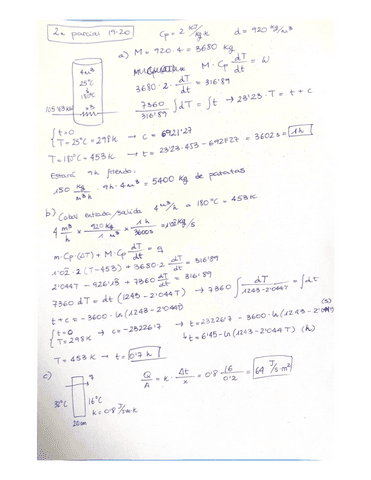 2n parcial 19-20
Cp = 2 kJ/kg·K
d = 920 kg/m³
a) M = 920·4 = 3680 kg
4m³
25°C
↓
180°C
M·Cp dT/dt = W
3680·2·dT/dt = 316'89
7360/316'89 ∫dT = ∫t → 23'23·T = t + c
{ t=0
T = 25°C = 298K → c = 6921'27
T = 180°C = 453K → t = 23'23·453 - 6921'27 = 3602s = 1h
Estará 9h friendo.
150 kg/m³h · 9h · 4m³ = 5400 kg de patatas
b) Cabal entrada/salida 4 m³/h a 180°C = 453K
4 m³/h × 920 kg/1 m³ × 1h/3600s = 1'02 kg/s
m·Cp·(ΔT) + M·Cp dT/dt = q
1'02·2(T-453) + 3680·2·dT/dt = 316'89
2'044T - 926'13 + 7360 dT/dt = 316'89
7360 dT = dt (1243 - 2'044T) → 7360 ∫ dT/1243-2'044T = ∫dt
t + c = -3600·ln(1243-2'044T)
{ t=0
T = 298K → c = -23226'7 → t = 23226'7 - 3600·ln(1243-2'044T) (s)
↳ t = 6'45 - ln(1243-2'044T) (h)
T = 453K → t = 0'7h
c)
q
32°C
16°C
k = 0'8 J/s·m·K
20cm
Q/A = k·Δt/x = 0'8·16/0'2 = 64 J/s·m²